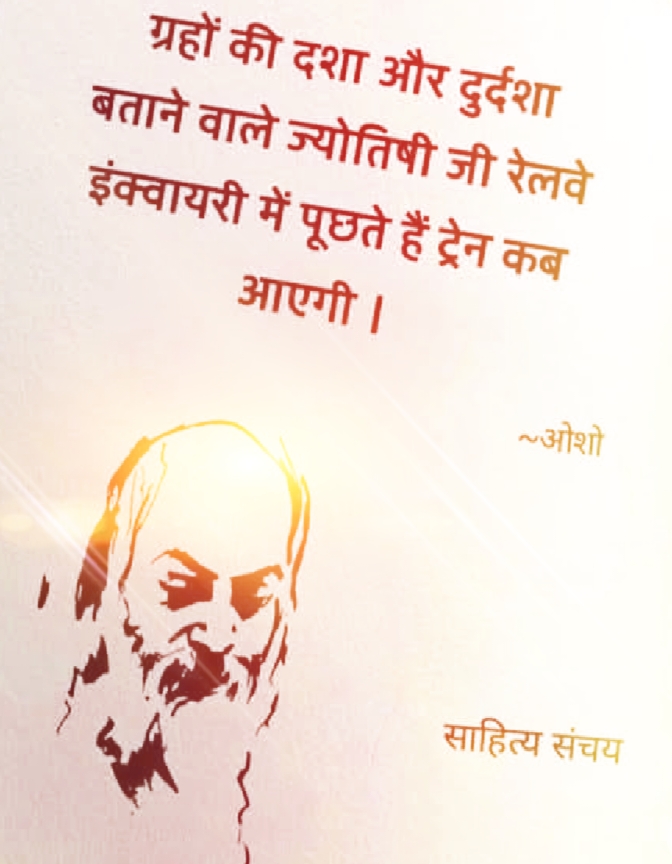 ग्रहों की दशा और दुर्दशा
बताने वाले ज्योतिषी जी रेलवे
इंक्वायरी में पूछते हैं ट्रेन कब
आएगी ।
~ओशो
साहित्य संचय